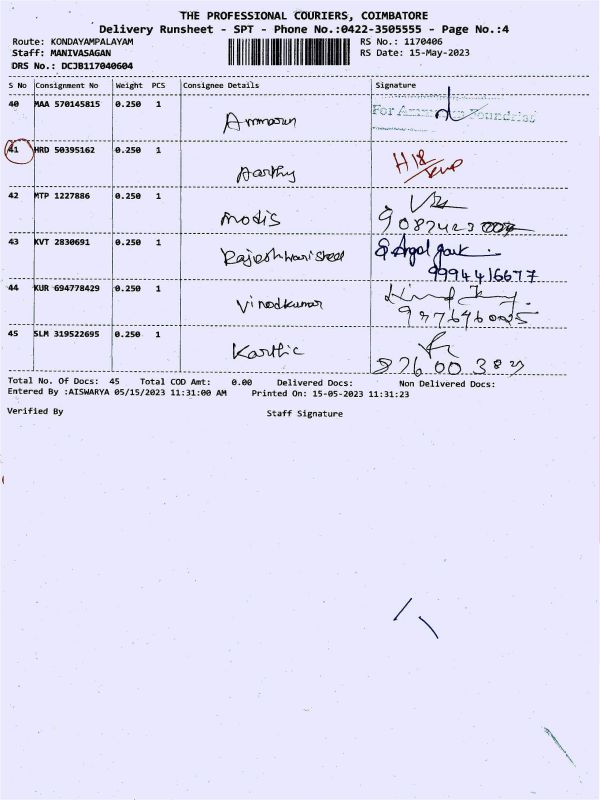 THE PROFESSIONAL COURIERS, COIMBATORE
Delivery Runsheet - SPT - Phone No.:0422-3505555 - Page No.:4
Route: KONDAYAMPALAYAM RS No.: 1170406
Staff: MANIVASAGAN RS Date: 15-May-2023
DRS No.: DCJB117040604
S No Consignment No Weight PCS Consignee Details Signature
40 MAA 570145815 0.250 1
For Foundries
41 HRD 50395162 0.250 1 Aarthy
42 MTP 1227886 0.250 1 modis
43 KVT 2830691 0.250 1 Rajeshwari steel
9994416677
44 KUR 694778429 0.250 1 Vinodkumar
45 SLM 319522695 0.250 1 Karthic
Total No. Of Docs: 45 Total COD Amt: 0.00 Delivered Docs: Non Delivered Docs:
Entered By :AISWARYA 05/15/2023 11:31:00 AM Printed On: 15-05-2023 11:31:23
Verified By Staff Signature